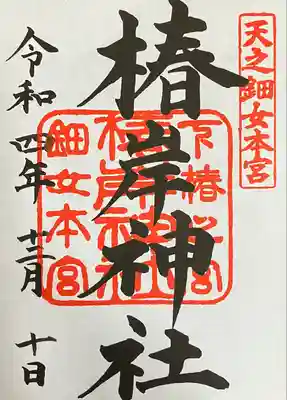 天之鈿女本宮
椿岸神社
鈿女本宮
令和四年 十二月 十日